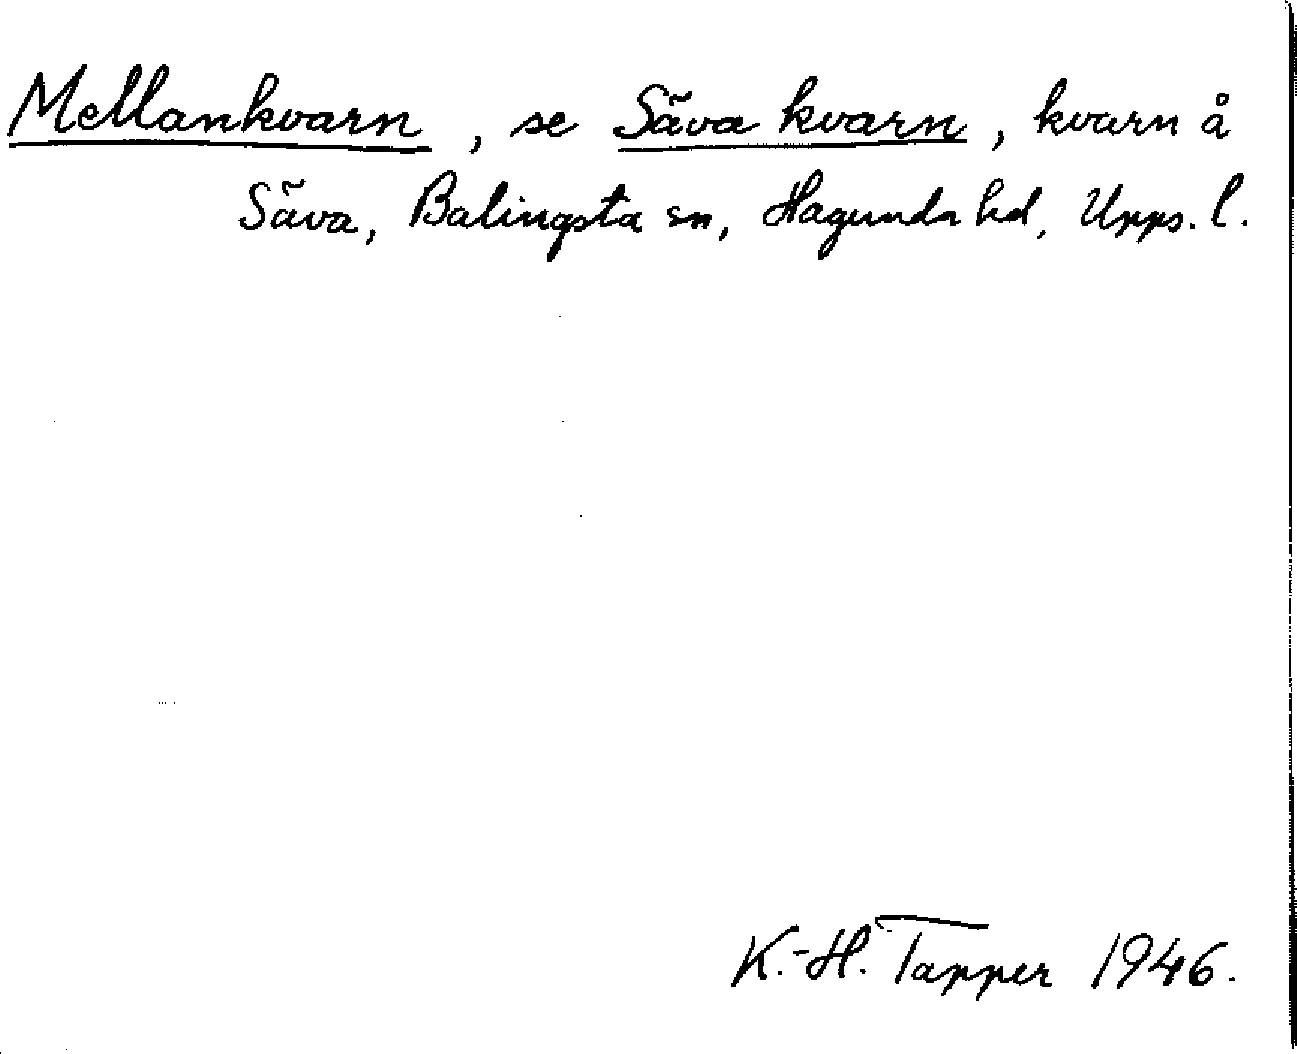 Mellankvarn, se Säva kvarn, kvarn å
Säva, Balingsta sn, Hagunda hd, Upps. l.
K.-H. Tapper 1946.